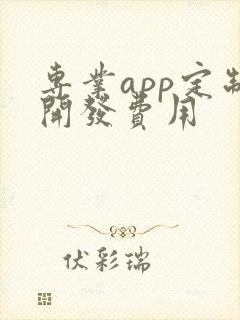 専業app定制
開發費用
伏彩瑞